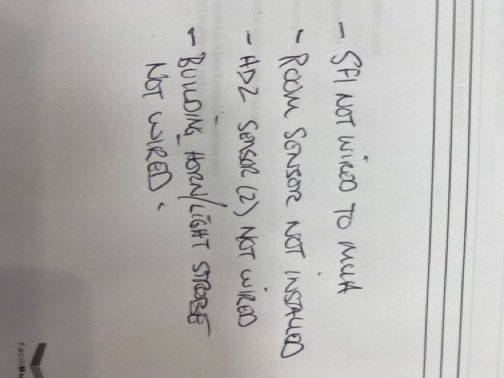 - SFI NOT WIRED TO MUA
- ROOM SENSOR NOT INSTALLED
- HDZ SENSOR (2) NOT WIRED
- BUILDING HORN/LIGHT STROBE
NOT WIRED.